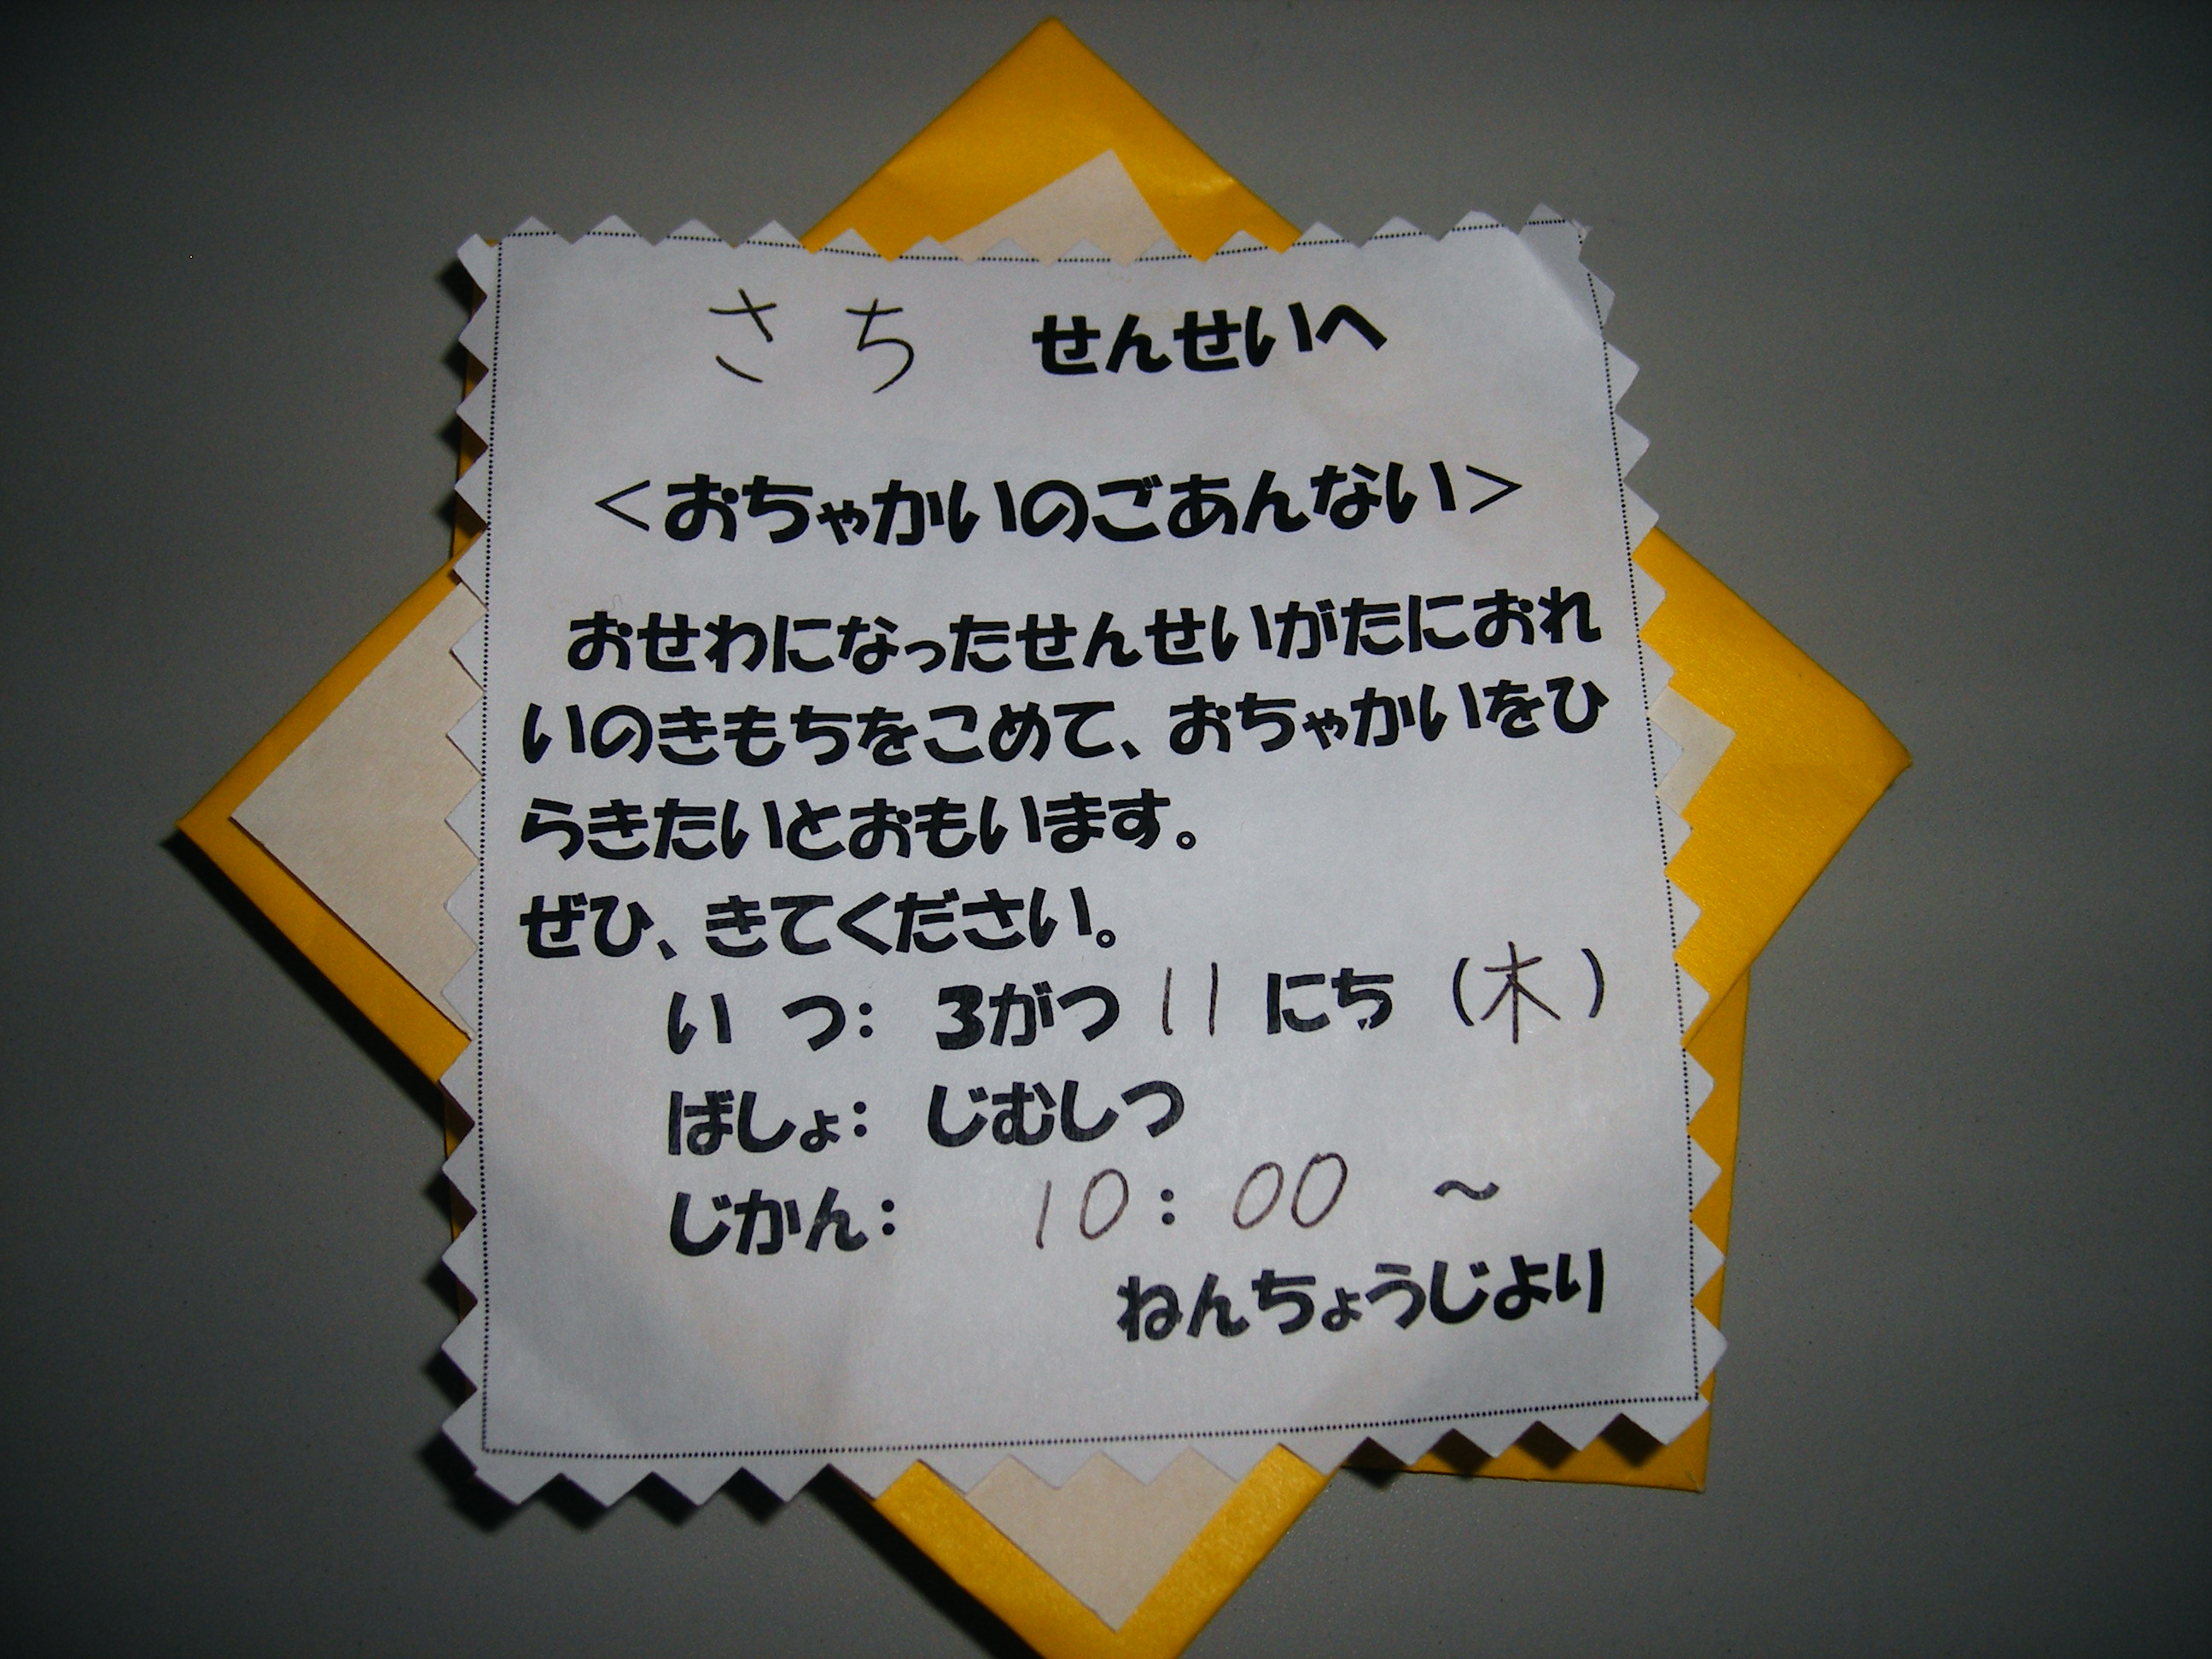 さち　せんせいへ
＜おちゃかいのごあんない＞
おせわになったせんせいがたにおれ
いのきもちをこめて、おちゃかいをひ
らきたいとおもいます。
ぜひ、きてください。
い　つ：　3がつ 11 にち （木）
ばしょ：　じむしつ
じかん：　10：00　～
ねんちょうじより